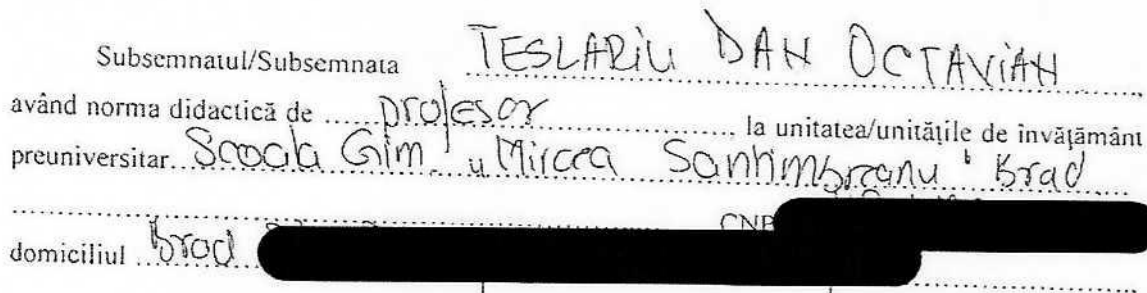 Subsemnatul/Subsemnata TESLARIU DAN OCTAVIAN
având norma didactică de profesor la unitatea/unităţile de învăţământ
preuniversitar Scoala Gim. "Mircea Santimbreanu" Brad
CNP
domiciliul Brad